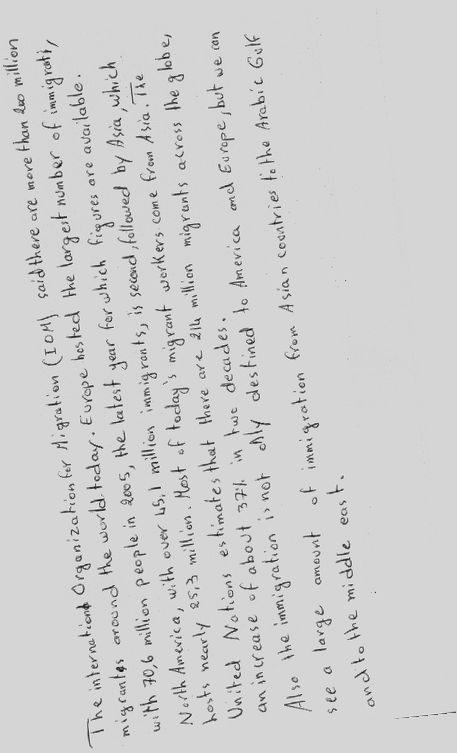 The internationl Organization for Migration (IOM) said there are more than 200 million
migrantes around the world today. Europe hosted the largest number of immigrati,
with 70,6 million people in 2005, the latest year for which figures are available.
North America, with over 45,1 million immigrants, is second, followed by Asia, which
hosts nearly 25,3 million. Most of today's migrant workers come from Asia. The
United Nations estimates that there are 214 million migrants across the globe,
an increase of about 37% in two decades.
Also the immigration is not only destined to America and Europe, but we can
see a large amount of immigration from Asian countries to the Arabic Gulf
and to the middle east.